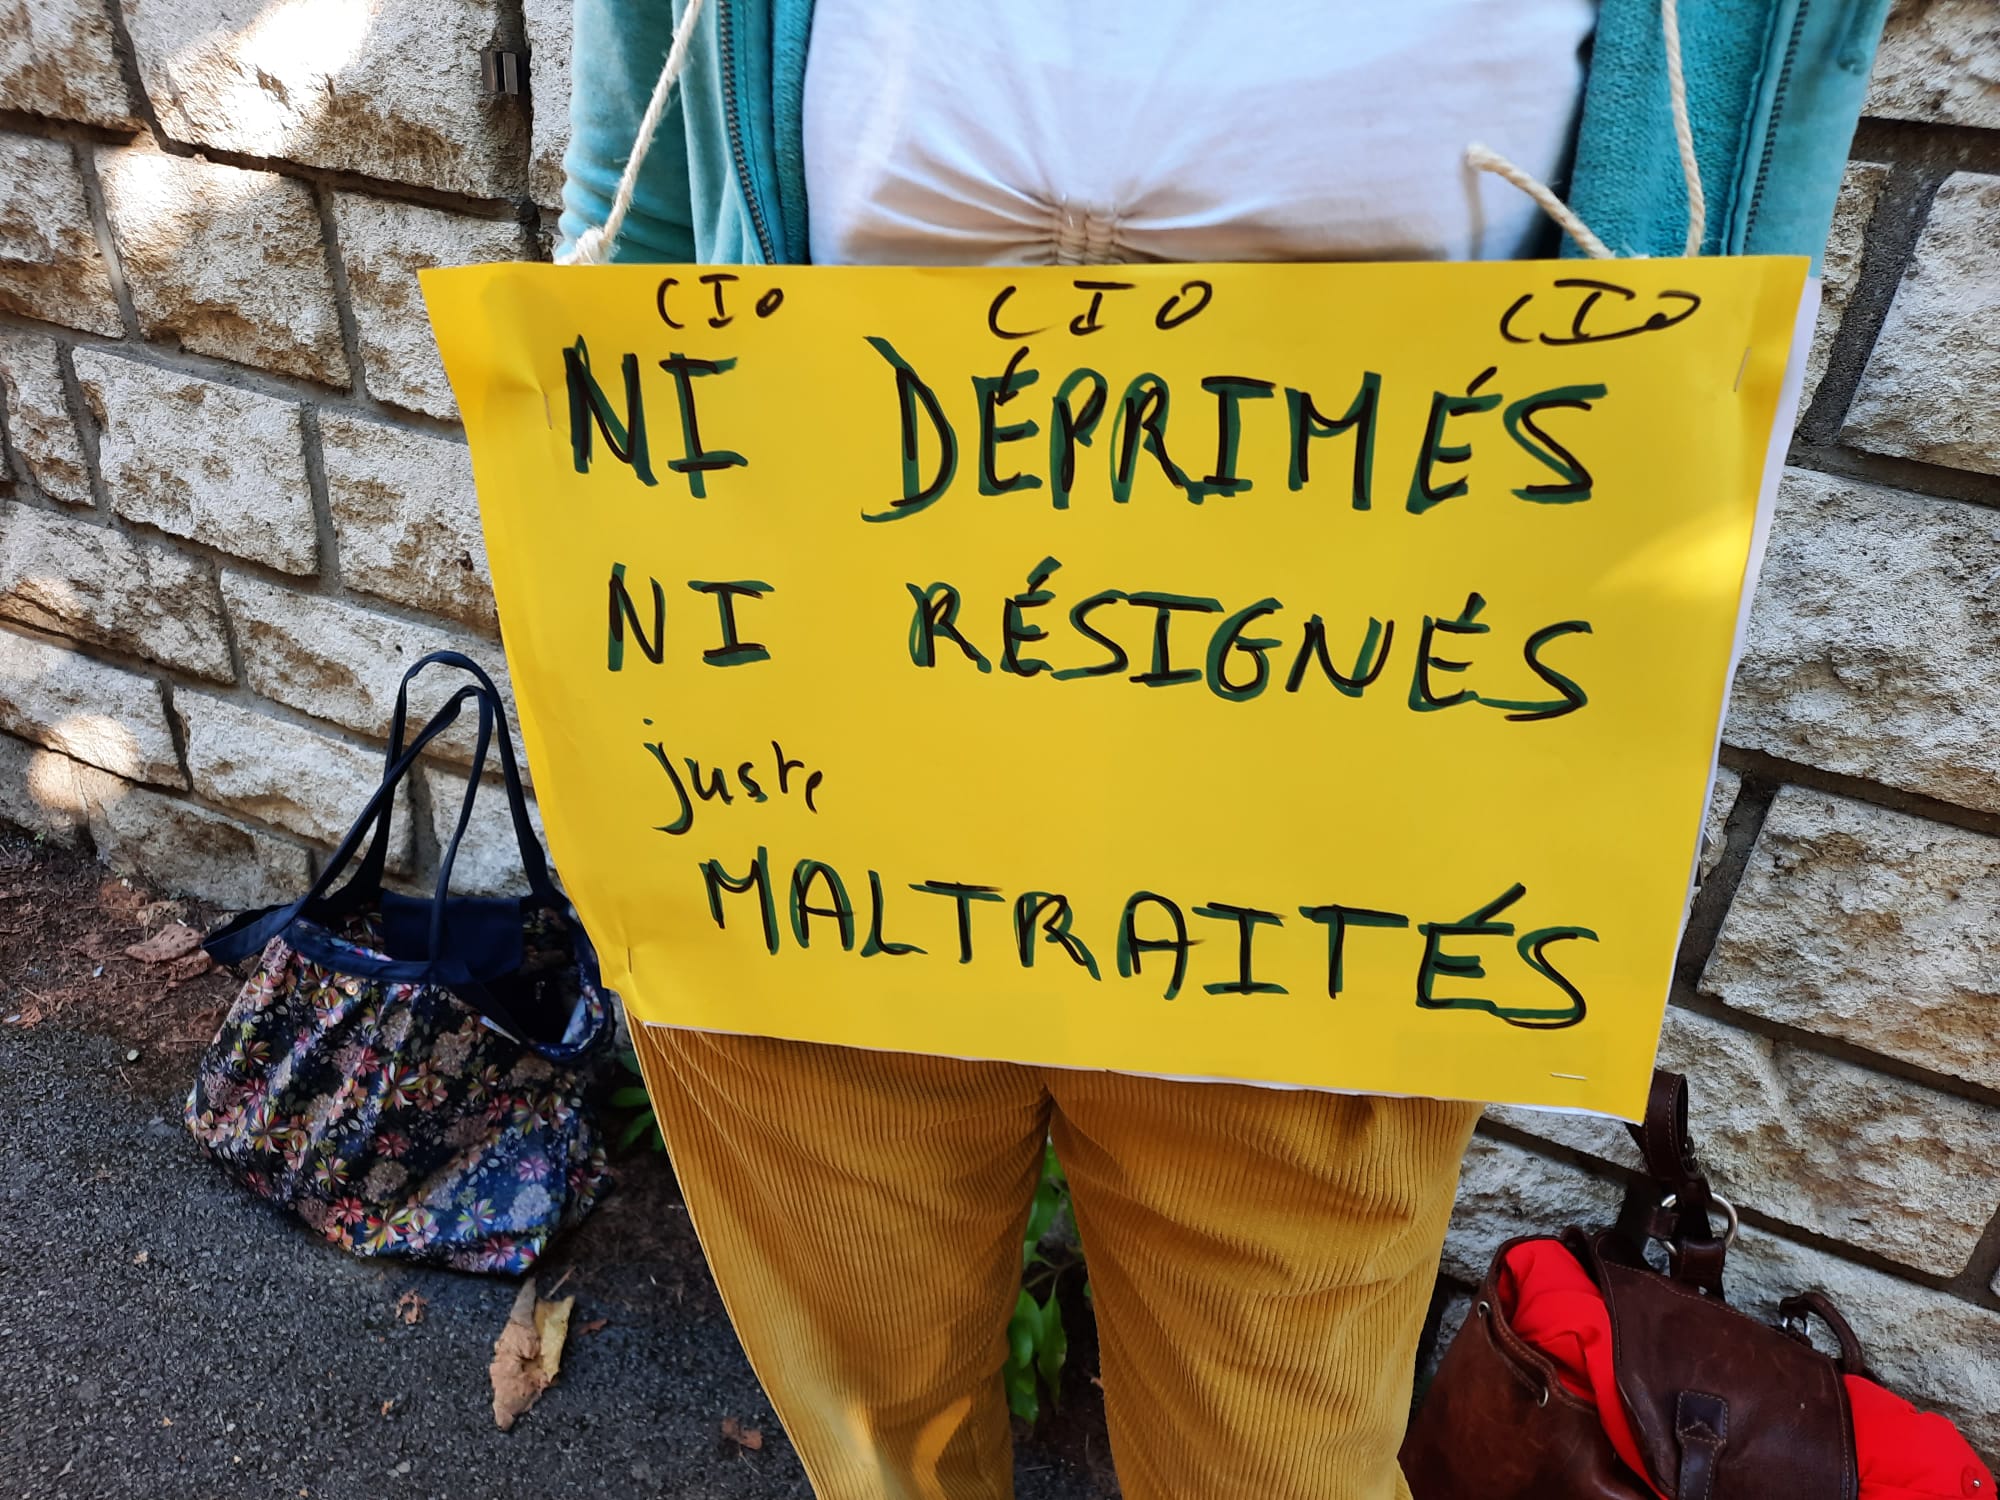 CIO CIO CIO
NI DÉPRIMÉS
NI RÉSIGNÉS
juste
MALTRAITÉS